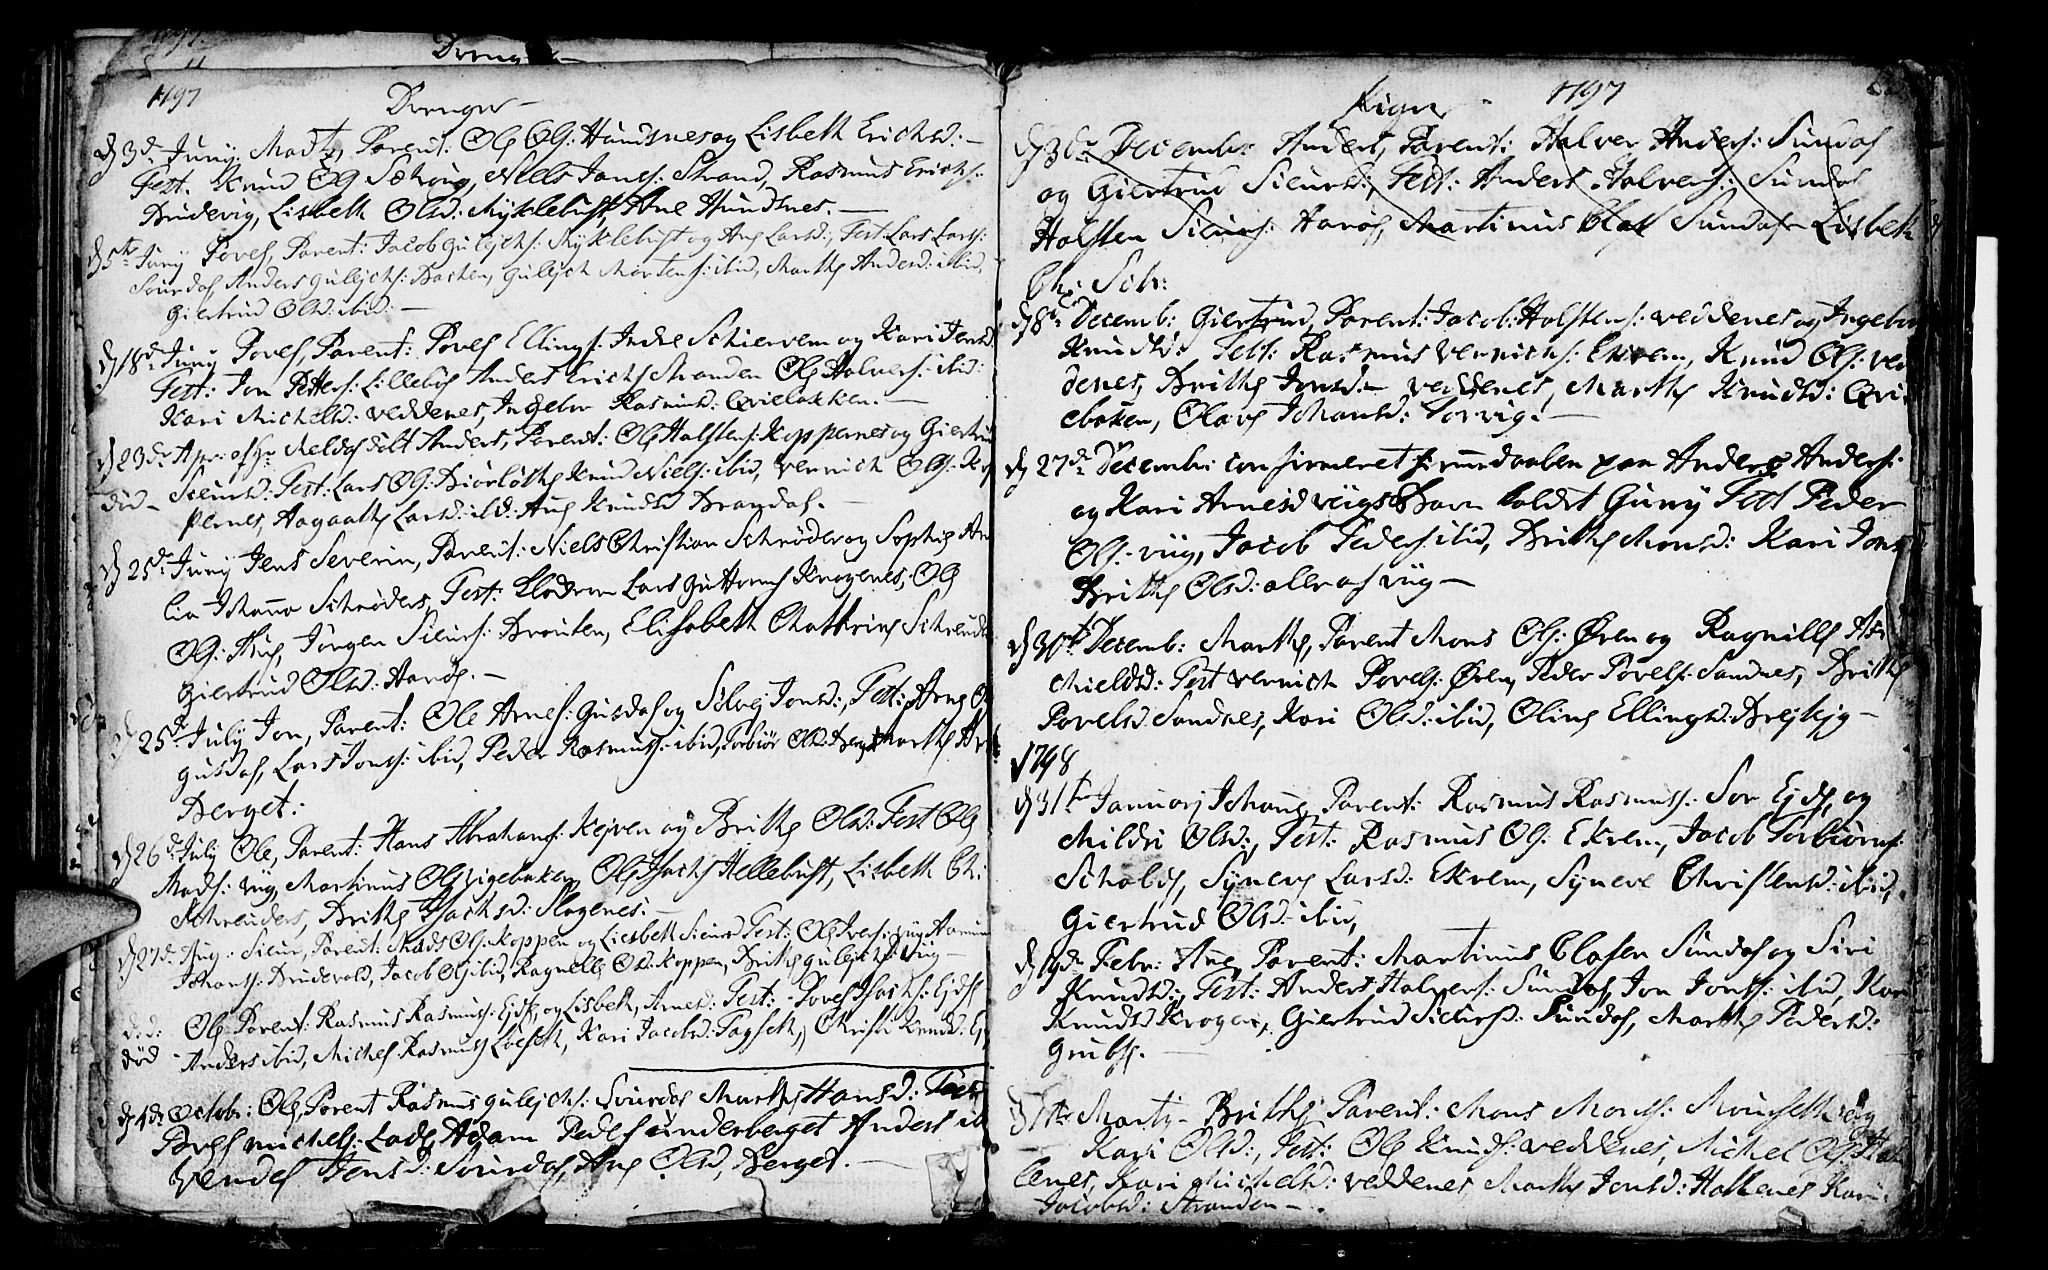 Drenge
1797
Drenge
d 3de Junj. Madtz, Parent: Ole Ols: Hundsnes og Lisbeth Erichsd:
Test. Knud Ols Niels Jons: Strand, Rasmus Erichs:
Brudevig, Lisbeth Olsd: Myklebust, Ane Hundsnes.
d 5te Junj Povel, Parent: Jacob Gulichs: Myklebust og Ane Larsd:, Test: Lars Lars:
Sourdal, Anders Gulichs: Bachen, Gulich Mortens: ibid, Marthe Andersd: ibid,
Giertrud Olsd: ibid:
d 18de Junj Povel, Parent: Povel Ellings: Indre Schiervem og Kari Jensd
Test: Jon Petters: Lillebøe Anders Erichs Stranden Ole Halvers: ibid:
Kari Michelsd: Veddenes, Ingebor Rasmusd: Qviebakken.
d 23de Apr: af Hr Meldal døbt Anders, Parent: Ole Halstens: Koppernes og Giertru
Sieursd: Test: Lars Ols: Knud Niels: ibid, Verrich Ols: Kop
pernes, Aagaathe Larsd: ibd: Ane Knudsd Brandal.
d 25de Junj Jens Severin, Parent: Niels Christian Schrøder og Sophie Am
lia Johanna Schrøders, Test: Lars Gutorms Kragenes, Ole
Ols: Jørgen Sieurs: Elisabeth Chathrine Schreuder
Giertrud Olsd: Harøe.
d 25de Julj Jon, Parent: Ole Arnes: Gusdal og Silvej Jonsd:, Test: Arne O
Gusdal, Lars Jons: ibid, Peder Rasmuss: ibid, Torbiør Olsd: Berget Marthe Ar
Berget:
d 26de Julj Ole, Parent: Hans Abrahams: Kejven og Brithe Olsd: Test Ole
Mads: Viig, Martinus Ols Ole Isachs Hellebust, Lisbeth Chr
Schreuders, Brithe Isachsd: Slogenes.
d 27de Aug: Sieur, Parent: Mads Ols: Koppen og Liesbeth Sieursd Test: Ole Ivers: Viig
Johans: Brudevold, Jacob Ols ibid, Ragnelle Olsd: Koppen, Brithe Gulichsd: Viig
d:d: Ole Parent: Rasmus Rasmuss: Ejde, og Lisbeth, Arnesd: Test: Povel Isachs: Ejde
død Anders ibid, Michel Rasmuss Løeseth, Kari Jacobsd: Fagseth, Christi Knudsd: Ej
d 4de Octobr: Ole, Parent Rasmus Gulichs: Sourdal Marthe Hansd: Test
Povel Michels: Lade Adam Peders underberget Anders ib
Vendel Jensd: Sourdal, Ane Olsd, Berget.
Piger 1797
d 3de December Anders, Parent: Halver Anders: Sundal
og Giertrud Sieursd:, Test: Anders Halvers: Sundal
Halsten Sieurs: Harøe, Martinus Olas Sundal Lisbeth
Chr: Sch:
d 8de Decemb: Giertrud, Parent: Jacob: Halstens: Veddenes og Ingebor
Knudsd: Test: Rasmus Verrichs: Ekrem, Knud Ols: Ved
denes, Brithe Jonsd: Veddenes, Marthe Knudsd: Qvi
ebaken, Olave Johansd: Torvig.
d 27de Decembr: confirmeret hiemmedaaben paa Anders Anders:
og Kari Arnesd Viigs Barn kaldet Guny Test Peder
Ols: Viig, Jacob Peders: ibid, Brithe Monsd: Kari Jons
Brithe Olsd: alle af Viig
d 30te Decemb: Marthe, Parent Mons Ols: Øren og Ragnille As
chieldsd: Test Verrich Povels: Øren, Peder Povels: Sandnes, Brithe
Povelsd: Sandnes, Kari Olsd: ibid, Oline Ellingsd: Brejteje
1798
d 31te Januarj Johane, Parent: Rasmus Rasmuss: Sør Ejde, og
Mildri Olsd:, Test: Rasmus Ols: Ekrem, Jacob Torbiørns:
Syneve Larsd: Ekrem, Syneve Christensd: ibid,
Giertrud Olsd: ibid,
Febr: Ane, Parent: Martinus Olasen Sundal og Siri
Knudsd:, Test: Anders Halvers: Sundal, Jon Jons: ibid, Kari
Knudsd Krogen, Giertrud Sieursd: Sundal, Marthe Pedersd:
Grubse.
d 1te Martj Brithe Parent: Mons Mons: Mouseth og
Kari Olsd:, Test: Ole Knuds: Veddenes, Michel Ols Hal
kenes, Kari Michelsd: Veddenes Marthe Jonsd: Halkenes Kari
Jacobsd: Stranden